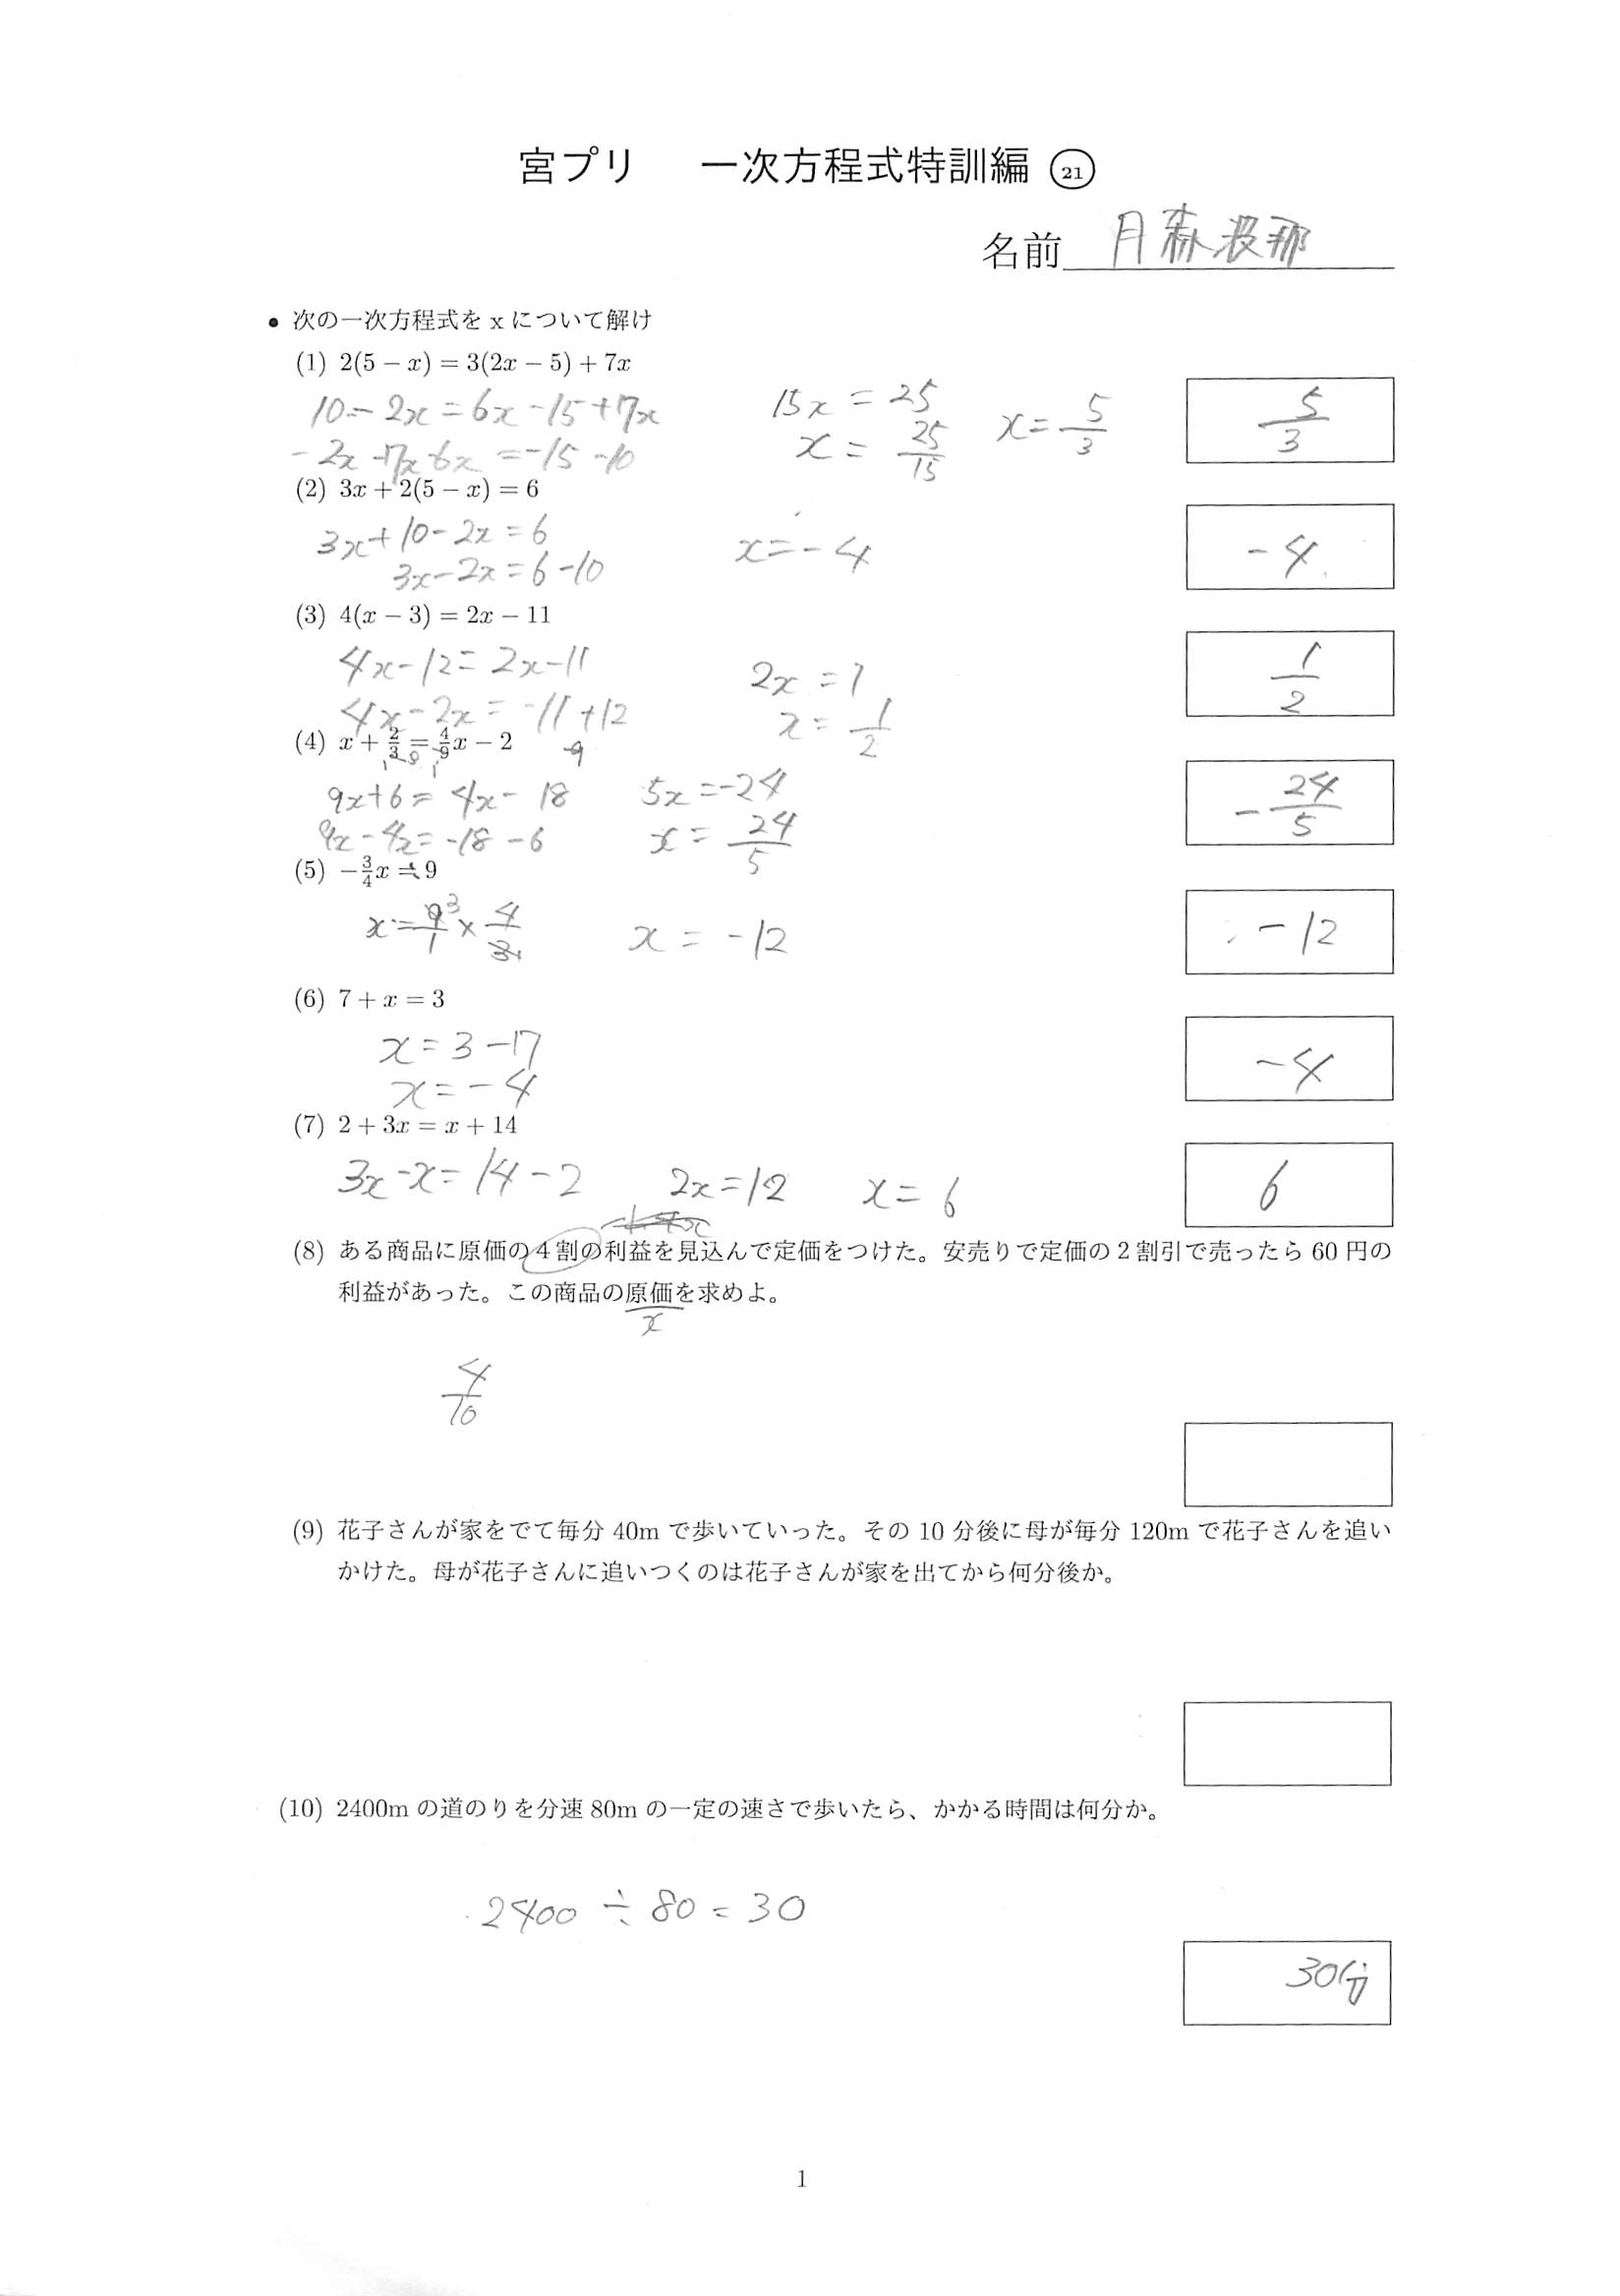 宮プリ 一次方程式特訓編 ㉑
名前 月森波那
• 次の一次方程式を x について解け
(1) 2(5 − x) = 3(2x − 5) + 7x
10 − 2x = 6x − 15 + 7x
15x = 25
x = 25/15
x = 5/3
5/3
(2) 3x + 2(5 − x) = 6
3x + 10 − 2x = 6
3x − 2x = 6 − 10
x = − 4
− 4
(3) 4(x − 3) = 2x − 11
4x − 12 = 2x − 11
4x − 2x = −11 + 12
2x = 1
x = 1/2
1/2
(4) x + 2/3 = 4/9x − 2
9x + 6 = 4x − 18
9x − 4x = −18 − 6
5x = −24
x = 24/5
− 24/5
(5) −3/4x = 9
x = − 12
− 12
(6) 7 + x = 3
x = 3 − 7
x = − 4
− 4
(7) 2 + 3x = x + 14
3x − x = 14 − 2
2x = 12
x = 6
6
(8) ある商品に原価の 4 割の利益を見込んで定価をつけた。安売りで定価の 2 割引で売ったら 60 円の
利益があった。この商品の原価を求めよ。
x
4/10
(9) 花子さんが家をでて毎分 40m で歩いていった。その 10 分後に母が毎分 120m で花子さんを追い
かけた。母が花子さんに追いつくのは花子さんが家を出てから何分後か。
(10) 2400m の道のりを分速 80m の一定の速さで歩いたら、かかる時間は何分か。
2400 ÷ 80 = 30
30分
1